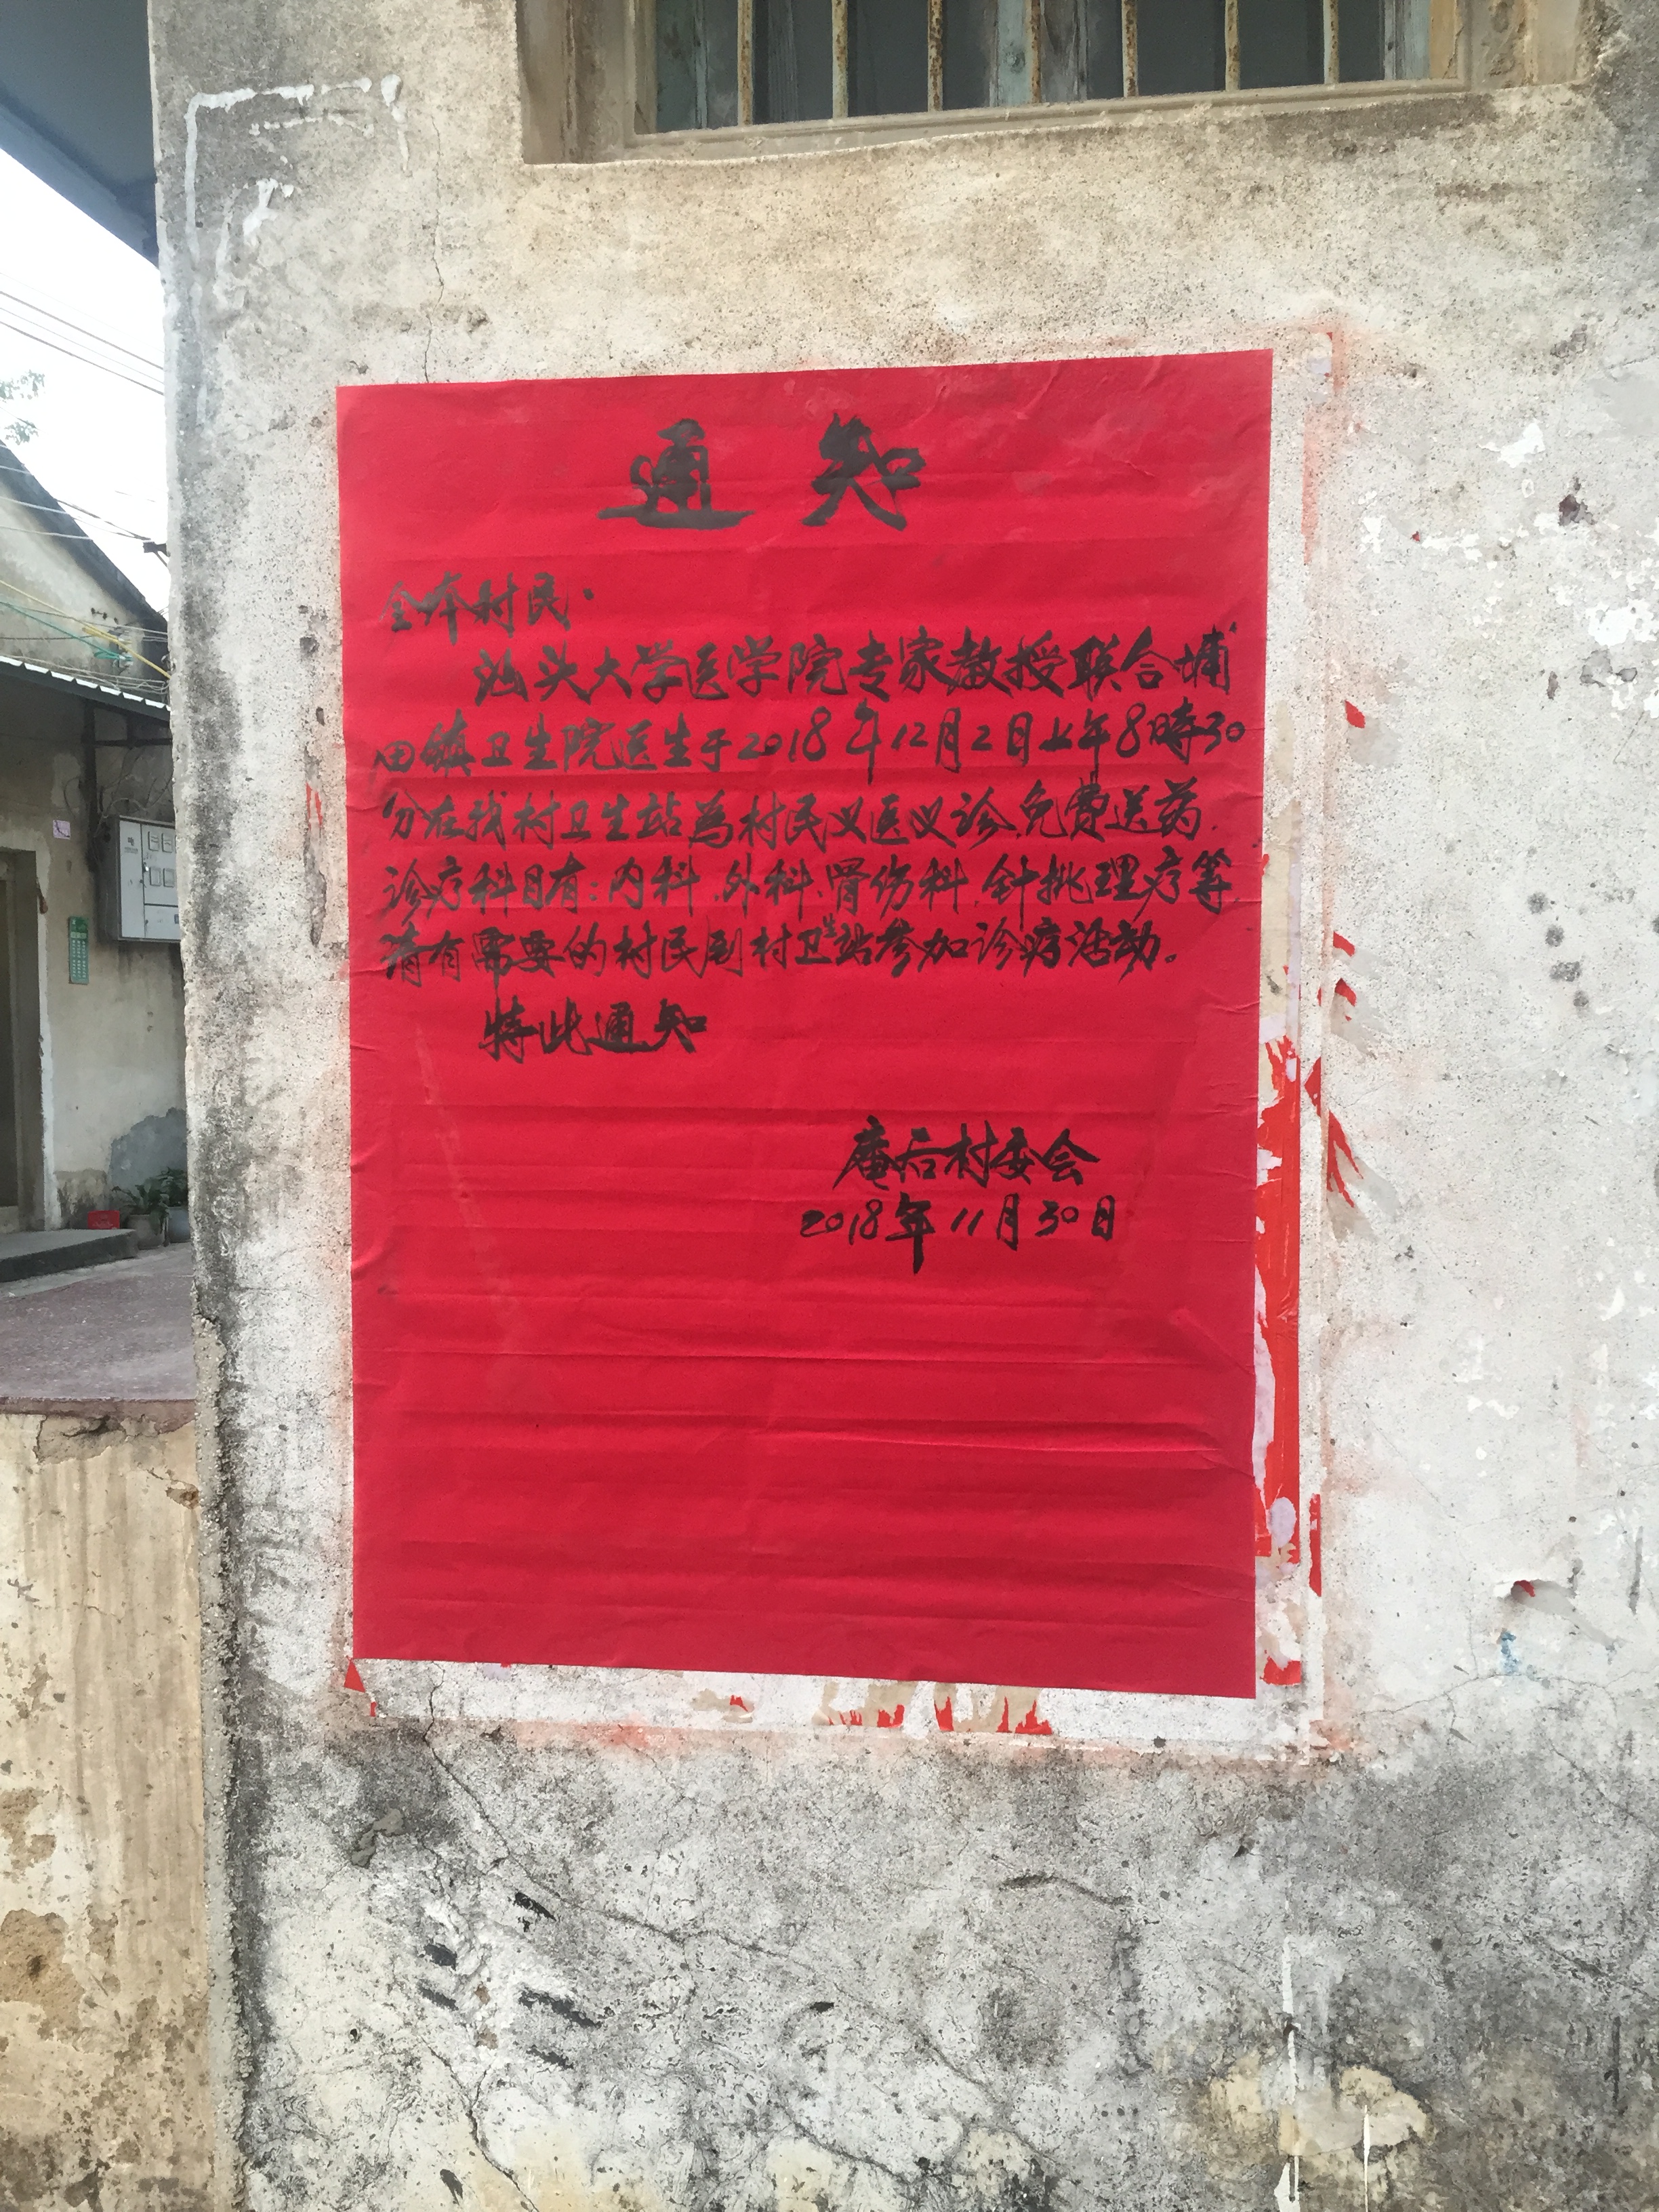 通知
全体村民:
汕头大学医学院专家教授联合埔
田镇卫生院医生于2018年12月2日上午8時30
分在我村卫生站為村民义医义诊免费送药.
诊疗科目有:内科.外科.骨伤科.针挑理疗等.
请有需要的村民到村卫生站参加诊疗活动。
特此通知
庵后村委会
2018年11月30日